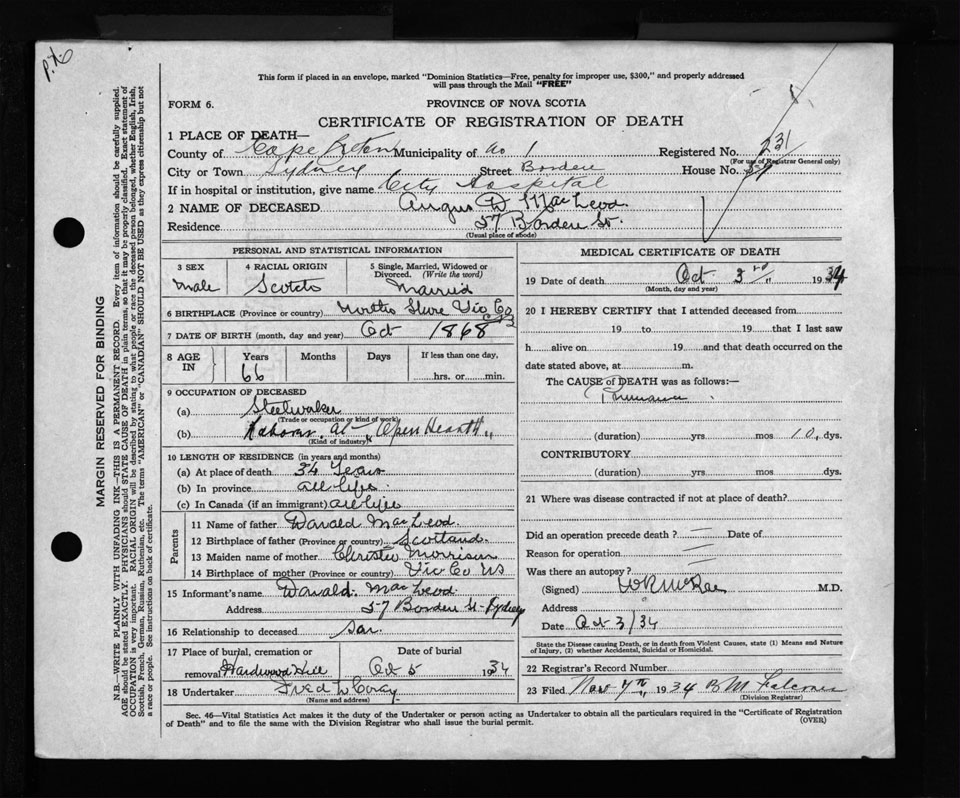 p.t.o
This form if placed in an envelope, marked "Dominion Statistics—Free, penalty for improper use, $300," and properly addressed
will pass through the Mail "FREE"
FORM 6.
PROVINCE OF NOVA SCOTIA
CERTIFICATE OF REGISTRATION OF DEATH
1 PLACE OF DEATH—
County of Cape Breton Municipality of no 1 Registered No. 231
(For use of Registrar General only)
City or Town Sydney Street Borden House No. 57
If in hospital or institution, give name City Hospital
2 NAME OF DECEASED Angus D MacLeod
Residence 57 Borden St.
(Usual place of abode)
PERSONAL AND STATISTICAL INFORMATION
3 SEX
male
4 RACIAL ORIGIN
Scotch
5 Single, Married, Widowed or
Divorced. (Write the word)
Married
6 BIRTHPLACE (Province or country) North Shore Vic Co
7 DATE OF BIRTH (month, day and year) Oct 1868
8 AGE
IN
Years
66
Months
Days
If less than one day,
hrs. or min.
9 OCCUPATION OF DECEASED
(a) Steelworker
(Trade or occupation or kind of work)
(b) at Open Hearth
(Kind of industry)
10 LENGTH OF RESIDENCE (in years and months)
(a) At place of death 34 Years
(b) In province all life
(c) In Canada (if an immigrant) all life
Parents
11 Name of father Donald MacLeod
12 Birthplace of father (Province or country) Scotland
13 Maiden name of mother Christie Morrison
14 Birthplace of mother (Province or country) Vic Co NS
15 Informant's name Donald MacLeod
Address 57 Borden St. Sydney
16 Relationship to deceased son
17 Place of burial, cremation or
removal Hardwood Hill
Date of burial
Oct 5 1934
18 Undertaker Fred L Coray
(Name and address)
MEDICAL CERTIFICATE OF DEATH
19 Date of death Oct 3rd 1934
(Month, day and year)
20 I HEREBY CERTIFY that I attended deceased from
19 to 19 that I last saw
h alive on 19 and that death occurred on the
date stated above, at m.
The CAUSE of DEATH was as follows:—
(duration) yrs mos 10 dys.
CONTRIBUTORY
(duration) yrs. mos. dys.
21 Where was disease contracted if not at place of death?
Did an operation precede death? Date of
Reason for operation
Was there an autopsy?
(Signed) M.D.
Address
Date Oct 3/34
State the Disease causing Death, or in death from Violent Causes, state (1) Means and Nature
of Injury, (2) whether Accidental, Suicidal or Homicidal.
22 Registrar's Record Number
23 Filed Nov 7th 1934 B M Falconer
(Division Registrar)
Sec. 46—Vital Statistics Act makes it the duty of the Undertaker or person acting as Undertaker to obtain all the particulars required in the "Certificate of Registration
of Death" and to file the same with the Division Registrar who shall issue the burial permit.
(OVER)
MARGIN RESERVED FOR BINDING
N.B.—WRITE PLAINLY WITH UNFADING INK—THIS IS A PERMANENT RECORD. Every item of information should be carefully supplied.
AGE should be stated EXACTLY. PHYSICIANS should STATE CAUSE OF DEATH in plain terms, so that it may be properly classified. Exact statement of
OCCUPATION is very important. RACIAL ORIGIN will be described by stating to what people or race the deceased person belonged, whether English, Irish,
Scottish, French, German, Russian, Ruthenian, etc. The terms "AMERICAN" or "CANADIAN" SHOULD NOT BE USED as they express citizenship but not
a race or people. See instructions on back of certificate.